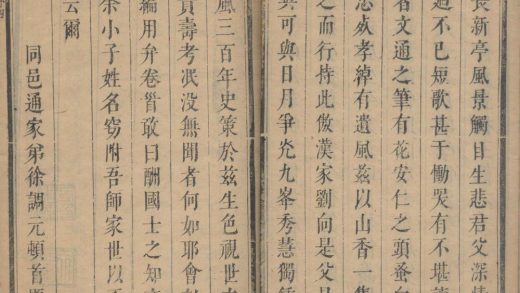 長新亭風景觸目生悲君父深情
過不已短歌甚于慟哭有不堪
者文通之筆有花安仁之頭蚤白
忽故孝綽有遺風茲以山香一集
之而行持此倣漢家劉向是父是
與可與日月爭光九峯秀慧獨鍾
風三百年史策於茲生色視世
貴壽考泯没無聞者何如耶會
編用弁卷首敢曰酬國士之知
余小子姓名窃附吾師家世以不
云爾
同邑通家弟徐調元頓首題